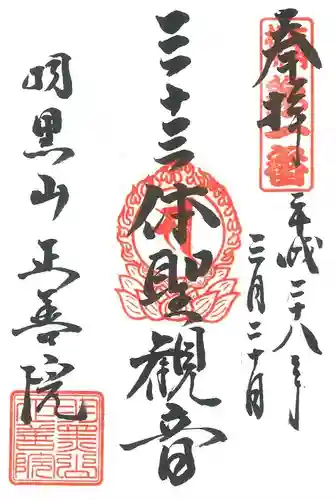 奉拝
平成二十八年
三月二十日
三十三体聖観音
羽黒山 正善院